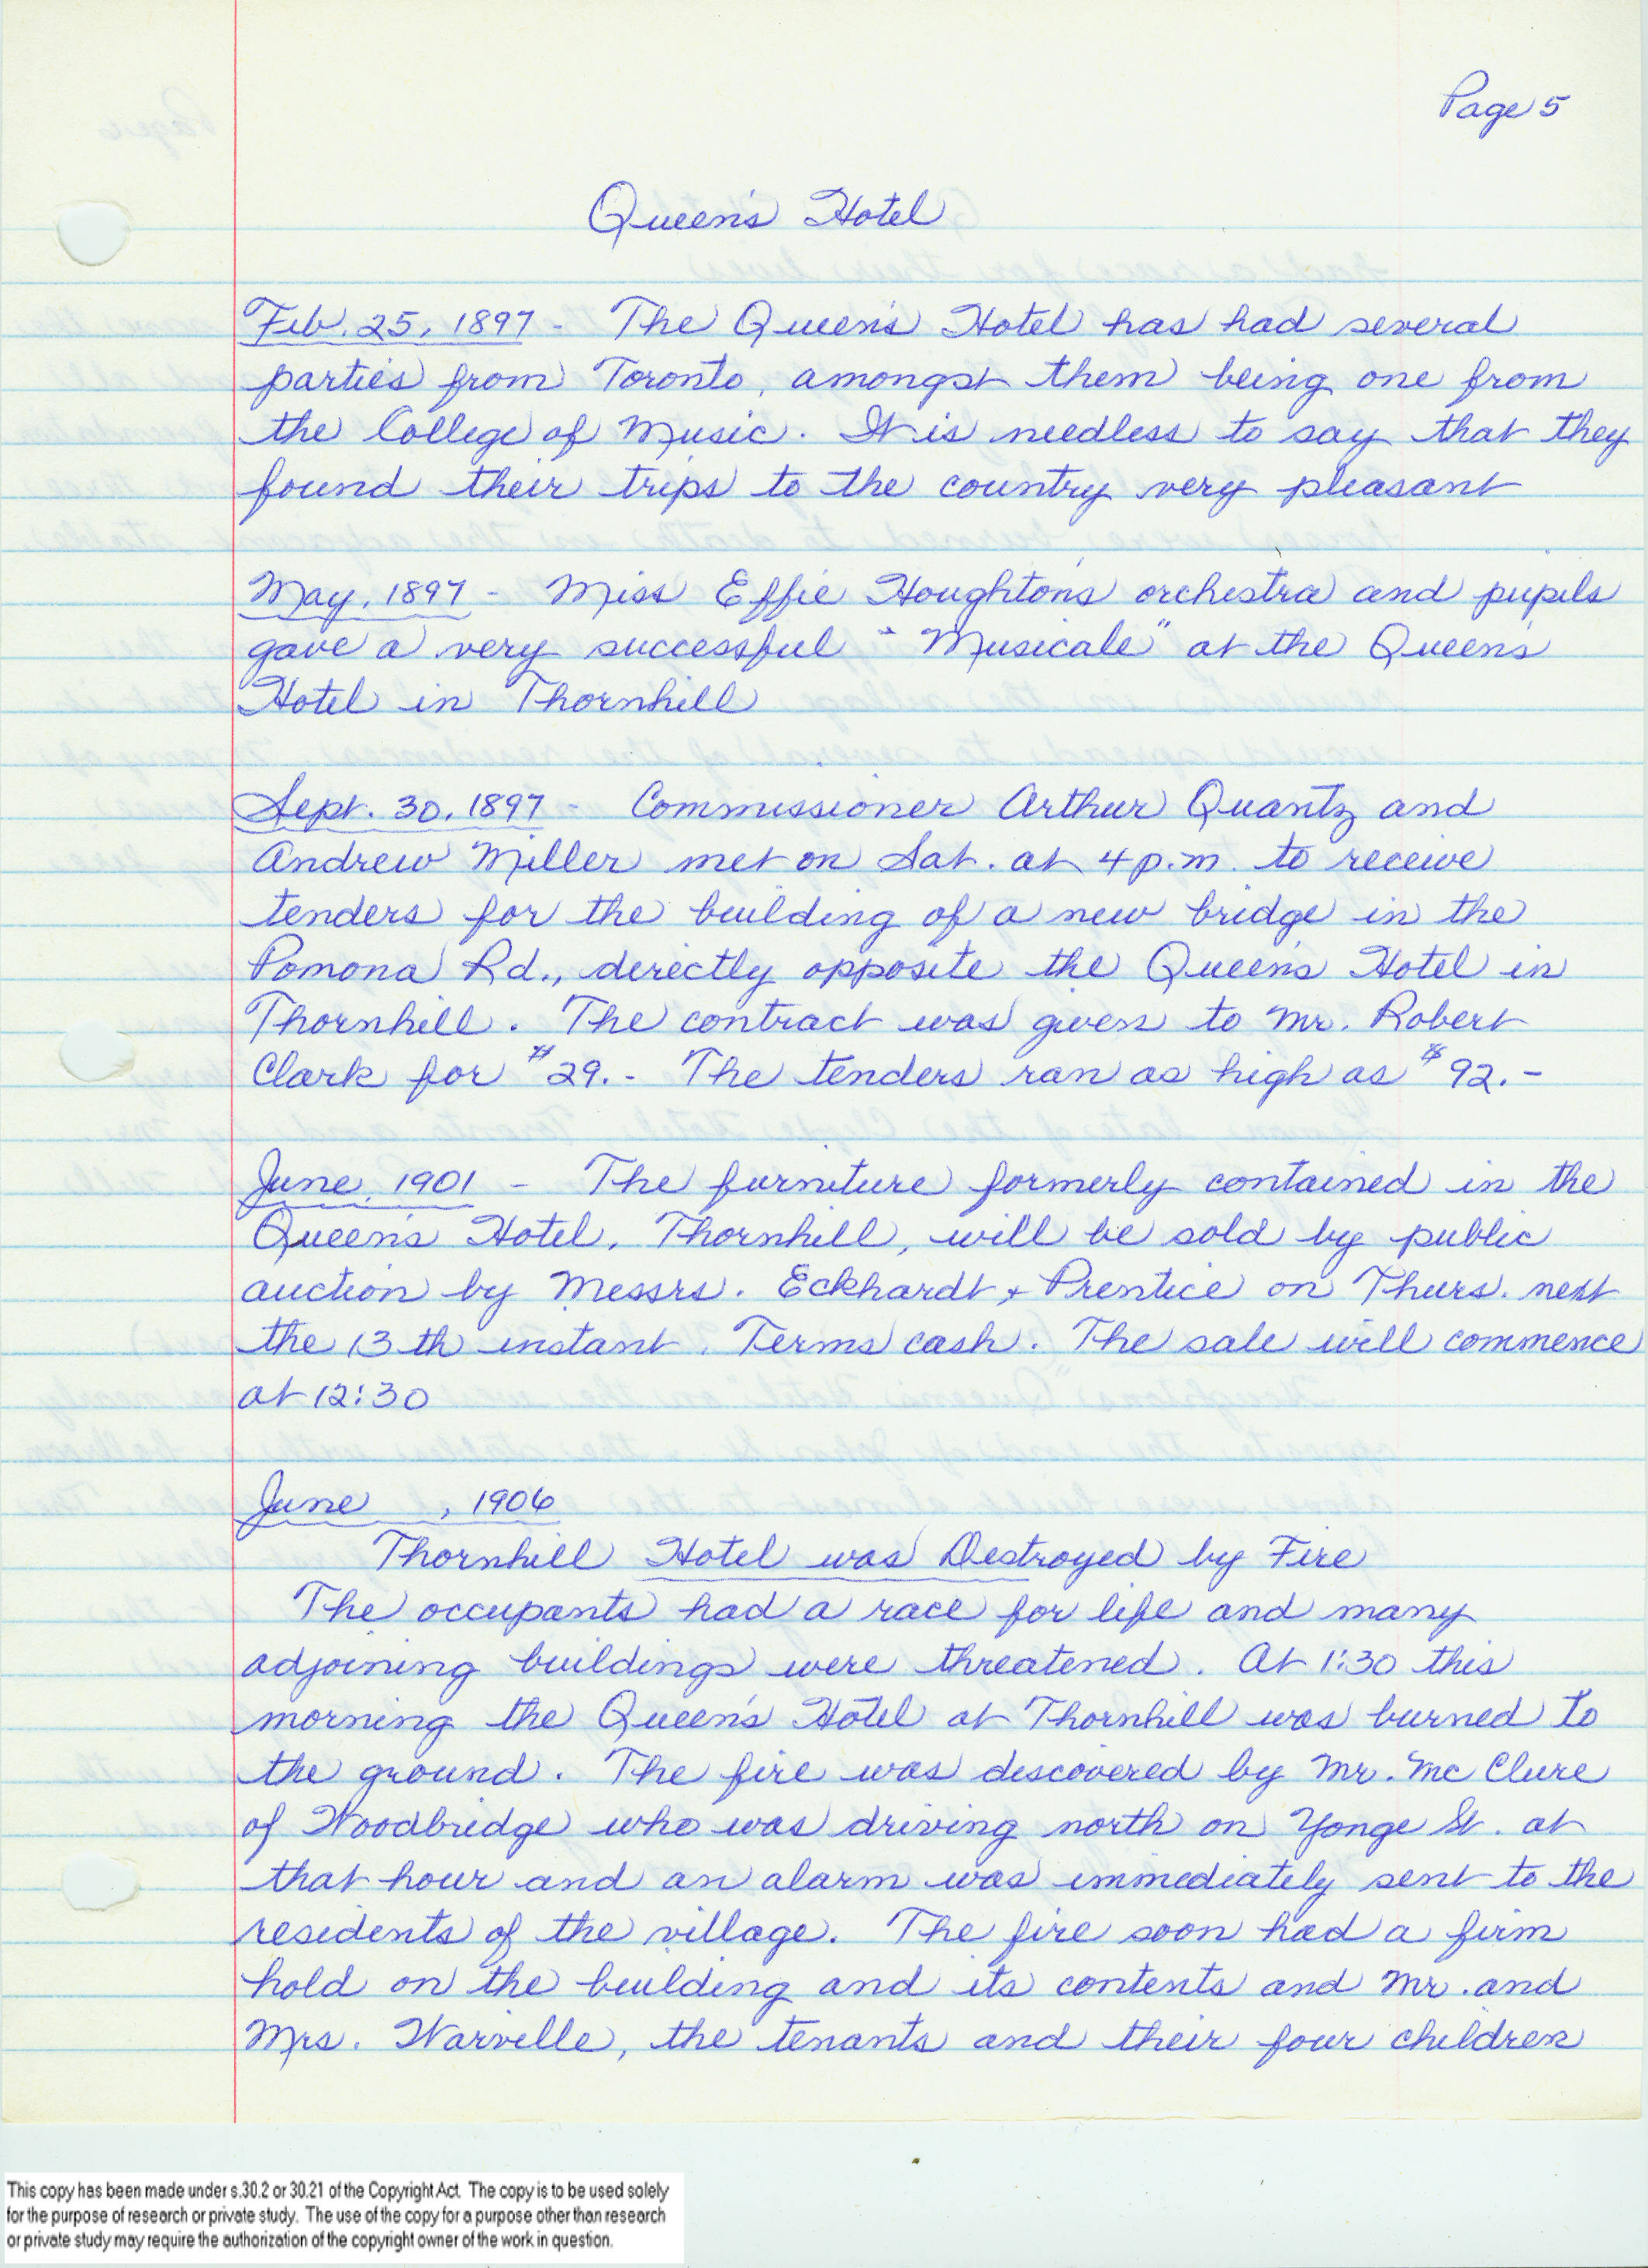 Page 5
Queen's Hotel
Feb. 25, 1897 - The Queen's Hotel has had several
parties from Toronto, amongst them being one from
the College of Music. It is needless to say that they
found their trips to the country very pleasant
May, 1897 - Miss Effie Houghton's orchestra and pupils
gave a very successful "Musicale" at the Queen's
Hotel in Thornhill
Sept. 30, 1897 - Commissioner Arthur Quantz and
Andrew Miller met on Sat. at 4 p.m. to receive
tenders for the building of a new bridge in the
Pomona Rd., directly opposite the Queen's Hotel in
Thornhill. The contract was given to Mr. Robert
Clark for $29.- The tenders ran as high as $92.-
June, 1901 - The furniture formerly contained in the
Queen's Hotel, Thornhill, will be sold by public
auction by Messrs. Eckhardt + Prentice on Thurs. next
the 13th instant. Terms cash. The sale will commence
at 12:30
June , 1906
Thornhill Hotel was Destroyed by Fire
The occupants had a race for life and many
adjoining buildings were threatened. At 1:30 this
morning the Queen's Hotel at Thornhill was burned to
the ground. The fire was discovered by Mr. Mc Clure
of Woodbridge who was driving north on Yonge St. at
that hour and an alarm was immediately sent to the
residents of the village. The fire soon had a firm
hold on the building and its contents and Mr. and
Mrs. Warville, the tenants and their four children
This copy has been made under s.30.2 or 30.21 of the Copyright Act. The copy is to be used solely
for the purpose of research or private study. The use of the copy for a purpose other than research
or private study may require the authorization of the copyright owner of the work in question.